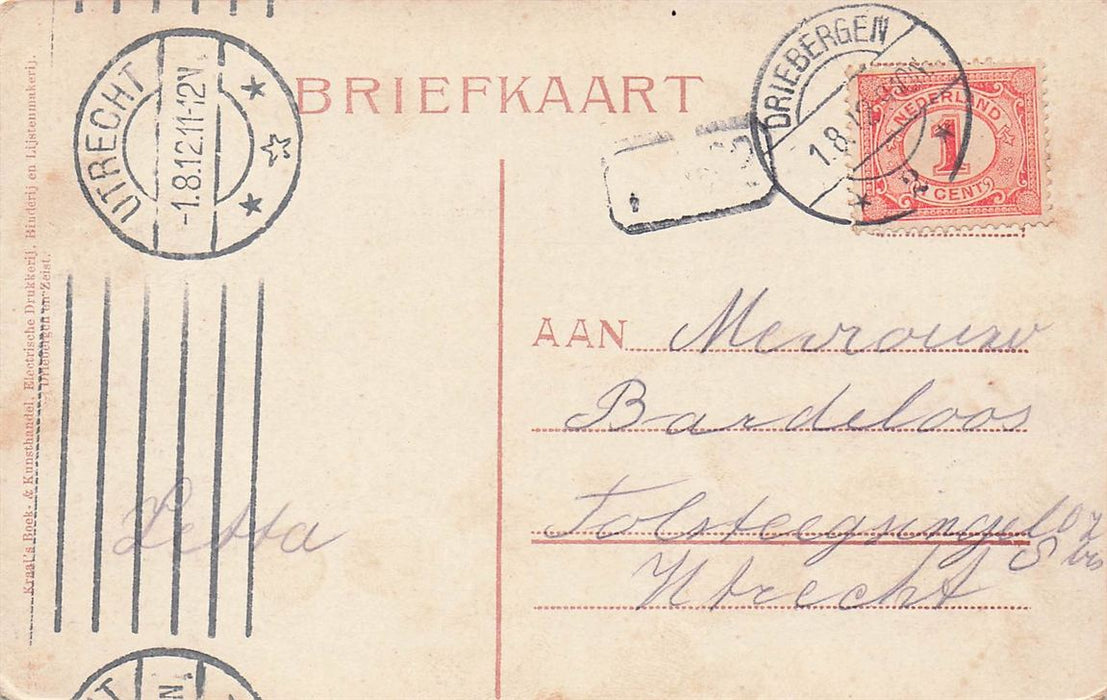 BRIEFKAART
UTRECHT
-1.8.12.11-12V.
DRIEBERGEN
1.8.12.
NEDERLAND
1
CENT
AAN Mevrouw
Bardeloos
Tolsteegsingel O.Z.
8 bis
Utrecht
Letta
Kraal's Boek- & Kunsthandel, Electrische Drukkerij, Binderij en Lijstenmakerij.
Driebergen en Zeist.
N
T